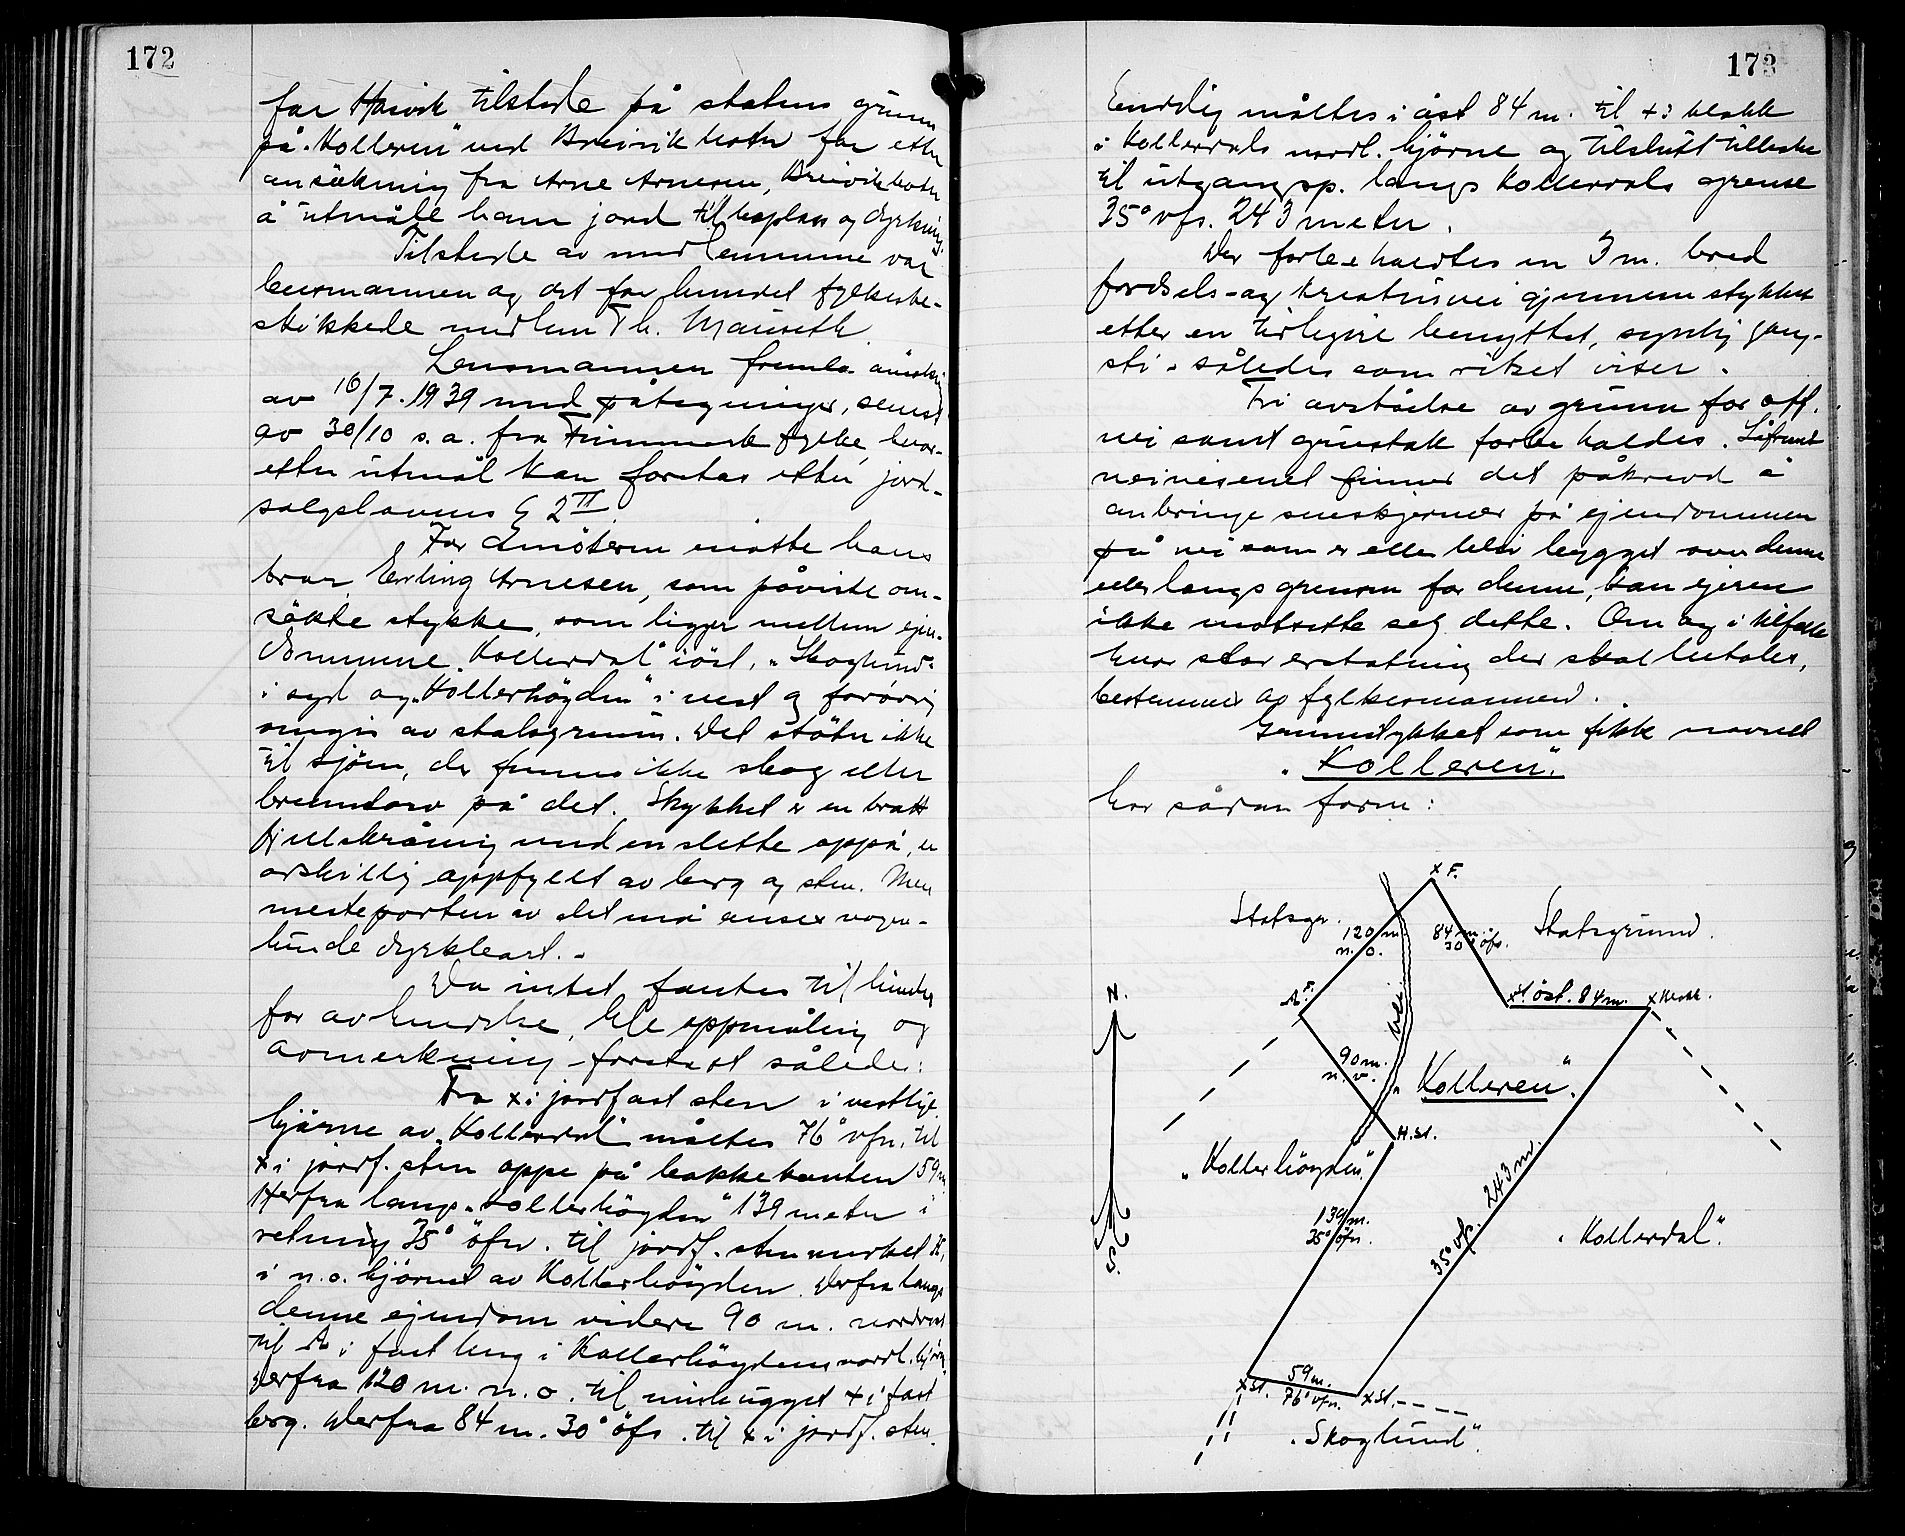 172
for Hasvik tilstede på statens grunn
på „Kolleren" ved Breivikbotn for etter
ansökning fra Arne Arnesen, Breivikbotn
å utmåle ham jord til byplass og dyrkning.
Tilstede av medlemmene var
lensmannen og det for herredet fylkesbe-
skikkede medlem Th. Mauseth.
Lensmannen fremla
av 16/7. 1939 med påtegninger, senest
av 30/10 s.a. fra Finnmark fylke, hvor-
etter utmål kan foretas etter jord-
salgslovens § 2 II.
For ansökeren mötte hans
bror Erling Arnesen, som påviste om-
sökte stykke, som ligger mellem ejen-
dommene „Kollerdal" i öst, „Skoglund"
i syd og „Kollerhögden" i vest og forövrig
omgis av statsgrunn. Det stöter ikke
til sjöen, der finnes ikke skog eller
brenntorv på det. Stykket er en bratt
fjellskråning med en slette oppå, er
adskillig oppfyllt av berg og sten. Men
mesteparten av det må ansees nogen-
lunde dyrkbart. -
Da intet fantes til hinder
for avhendelse, ble oppmåling og
avmerkning foretat således:
Fra x i jordfast sten i vestlige
hjörne av „Kollerdal" måltes 76° vfn. til
x i jordf. sten oppe på bakkekanten 59 m.
Herfra langs „Kollerhögden" 139 meter i
retning 35° öfn. til jordf. sten merket H,
i n.o. hjörnet av Kollerhögden. Derfra langs
denne ejendom videre 90 m. nordvest
til A i fast berg i Kollerhögdens nordl. hjörne
Derfra 120 m. n.o. til innhugget x i fast
berg. Derfra 84 m. 30° öfs. til x i jordf. sten.
173
Endelig måltes i öst 84 m. til x i blokk
i Kollerdals nordl. hjörne og tilslutt tilbake
til utgangsp. langs Kollerdals grense
35° vfs. 243 meter.
Der forbeholdtes en 3 m. bred
ferdsels- og kreatursvei gjennem stykket
etter en tidligere benyttet, synlig gang-
sti - således som ritset viser.
Fri avståelse av grunn for off.
vei samt grustak forbeholdes. Såfremt
veivesenet finner det påkrevd å
anbringe sneskjermer på ejendommen
på vei som er eller blir bygget over denne
eller langs grensen for denne, kan ejeren
ikke motsette seg dette. Om og i tilfelle
hvor stor erstatning der skal betales,
bestemmes av fylkesmannen.
Grunnstykket som fikk navnet
„Kolleren"
har sådan form:
x F.
Statsgr.
120 m.
n.o.
84 m.
30° öfs.
Statsgrunn.
N.
A F.
x St. öst. 84 m. x blokk.
Vei
90 m.
n.v.
„Kolleren".
H. St.
„Kollerhögden".
243 m.
35° vfs.
139 m.
35° öfn.
„Kollerdal".
S.
59 m.
x St. 76° vfn. x St.
„Skoglund".